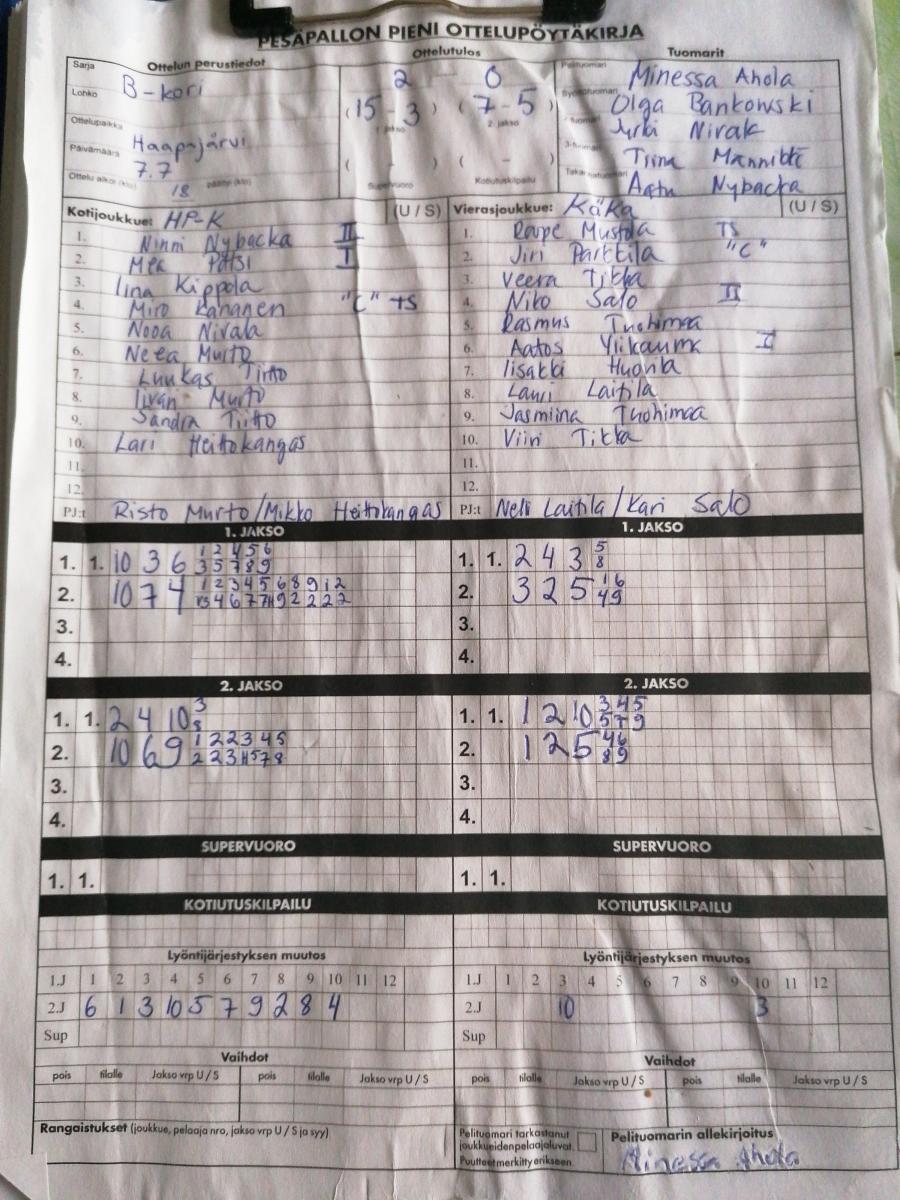 PESÄPALLON PIENI OTTELUPÖYTÄKIRJA
Sarja Ottelun perustiedot Ottelutulos Tuomarit
B-kori 2 0 Pelituomari Minessa Ahola
Lohko (15 - 3) (7 - 5) Syöttötuomari Olga Bankowski
1. jakso 2. jakso
Ottelupaikka Haapajärvi Nivak
Päivämäärä 7.7 ( - ) ( - ) Tiina
Ottelu alkoi (klo) 18 päättyi (klo) Supervuoro Kotiutuskilpailu Takatuomari Aatu Nybacka
Kotijoukkue: HP-K (U / S) Vierasjoukkue: KäKa (U / S)
1. Ninni Nybacka II 1. Roope Mustola TS
2. Mea Pätsi I 2. Jiri Parkkila "C"
3. Iina Kippola 3. Veera Tikka
4. Miro Kananen "C" TS 4. Niko Salo II
5. Nooa Nivala 5. Rasmus Tuohimaa
6. Neea Murto 6. Aatos Ylikauma I
7. Luukas Tiitto 7. Iisakki Huonla
8. Iivari Murto 8. Lauri Laitila
9. Sandra Tiitto 9. Jasmiina Tuohimaa
10. Lari Heitokangas 10. Viivi Tikka
11. 11.
12. 12.
PJ:t Risto Murto/Mikko Heitokangas PJ:t Neli Laitila/Kari Salo
1. JAKSO 1. JAKSO
1. 1. 10 3 6 1 2 4 5 6 1. 1. 2 4 3 5
3 5 7 8 9 8
2. 10 7 4 1 2 3 4 5 6 8 9 1 2 2. 3 2 5 1 6
4 9
3. 3.
4. 4.
2. JAKSO 2. JAKSO
1. 1. 2 4 10 3 1. 1. 1 2 10 3 4 5
8 5 7 9
2. 10 6 9 1 2 2 3 4 5 2. 1 2 5 4 6
8 9
3. 3.
4. 4.
SUPERVUORO SUPERVUORO
1. 1. 1. 1.
KOTIUTUSKILPAILU KOTIUTUSKILPAILU
Lyöntijärjestyksen muutos Lyöntijärjestyksen muutos
1.J 1 2 3 4 5 6 7 8 9 10 11 12 1.J 1 2 3 4 5 6 7 8 9 10 11 12
2.J 6 1 3 10 5 7 9 2 8 4 2.J 10 3
Sup Sup
Vaihdot Vaihdot
pois tilalle Jakso vrp U / S pois tilalle Jakso vrp U / S pois tilalle Jakso vrp U / S pois tilalle Jakso vrp U / S
Rangaistukset (joukkue, pelaaja nro, jakso vrp U / S ja syy) Pelituomari tarkastanut Pelituomarin allekirjoitus
joukkueiden pelaajaluvat.
Puutteet merkitty erikseen. Minessa Ahola